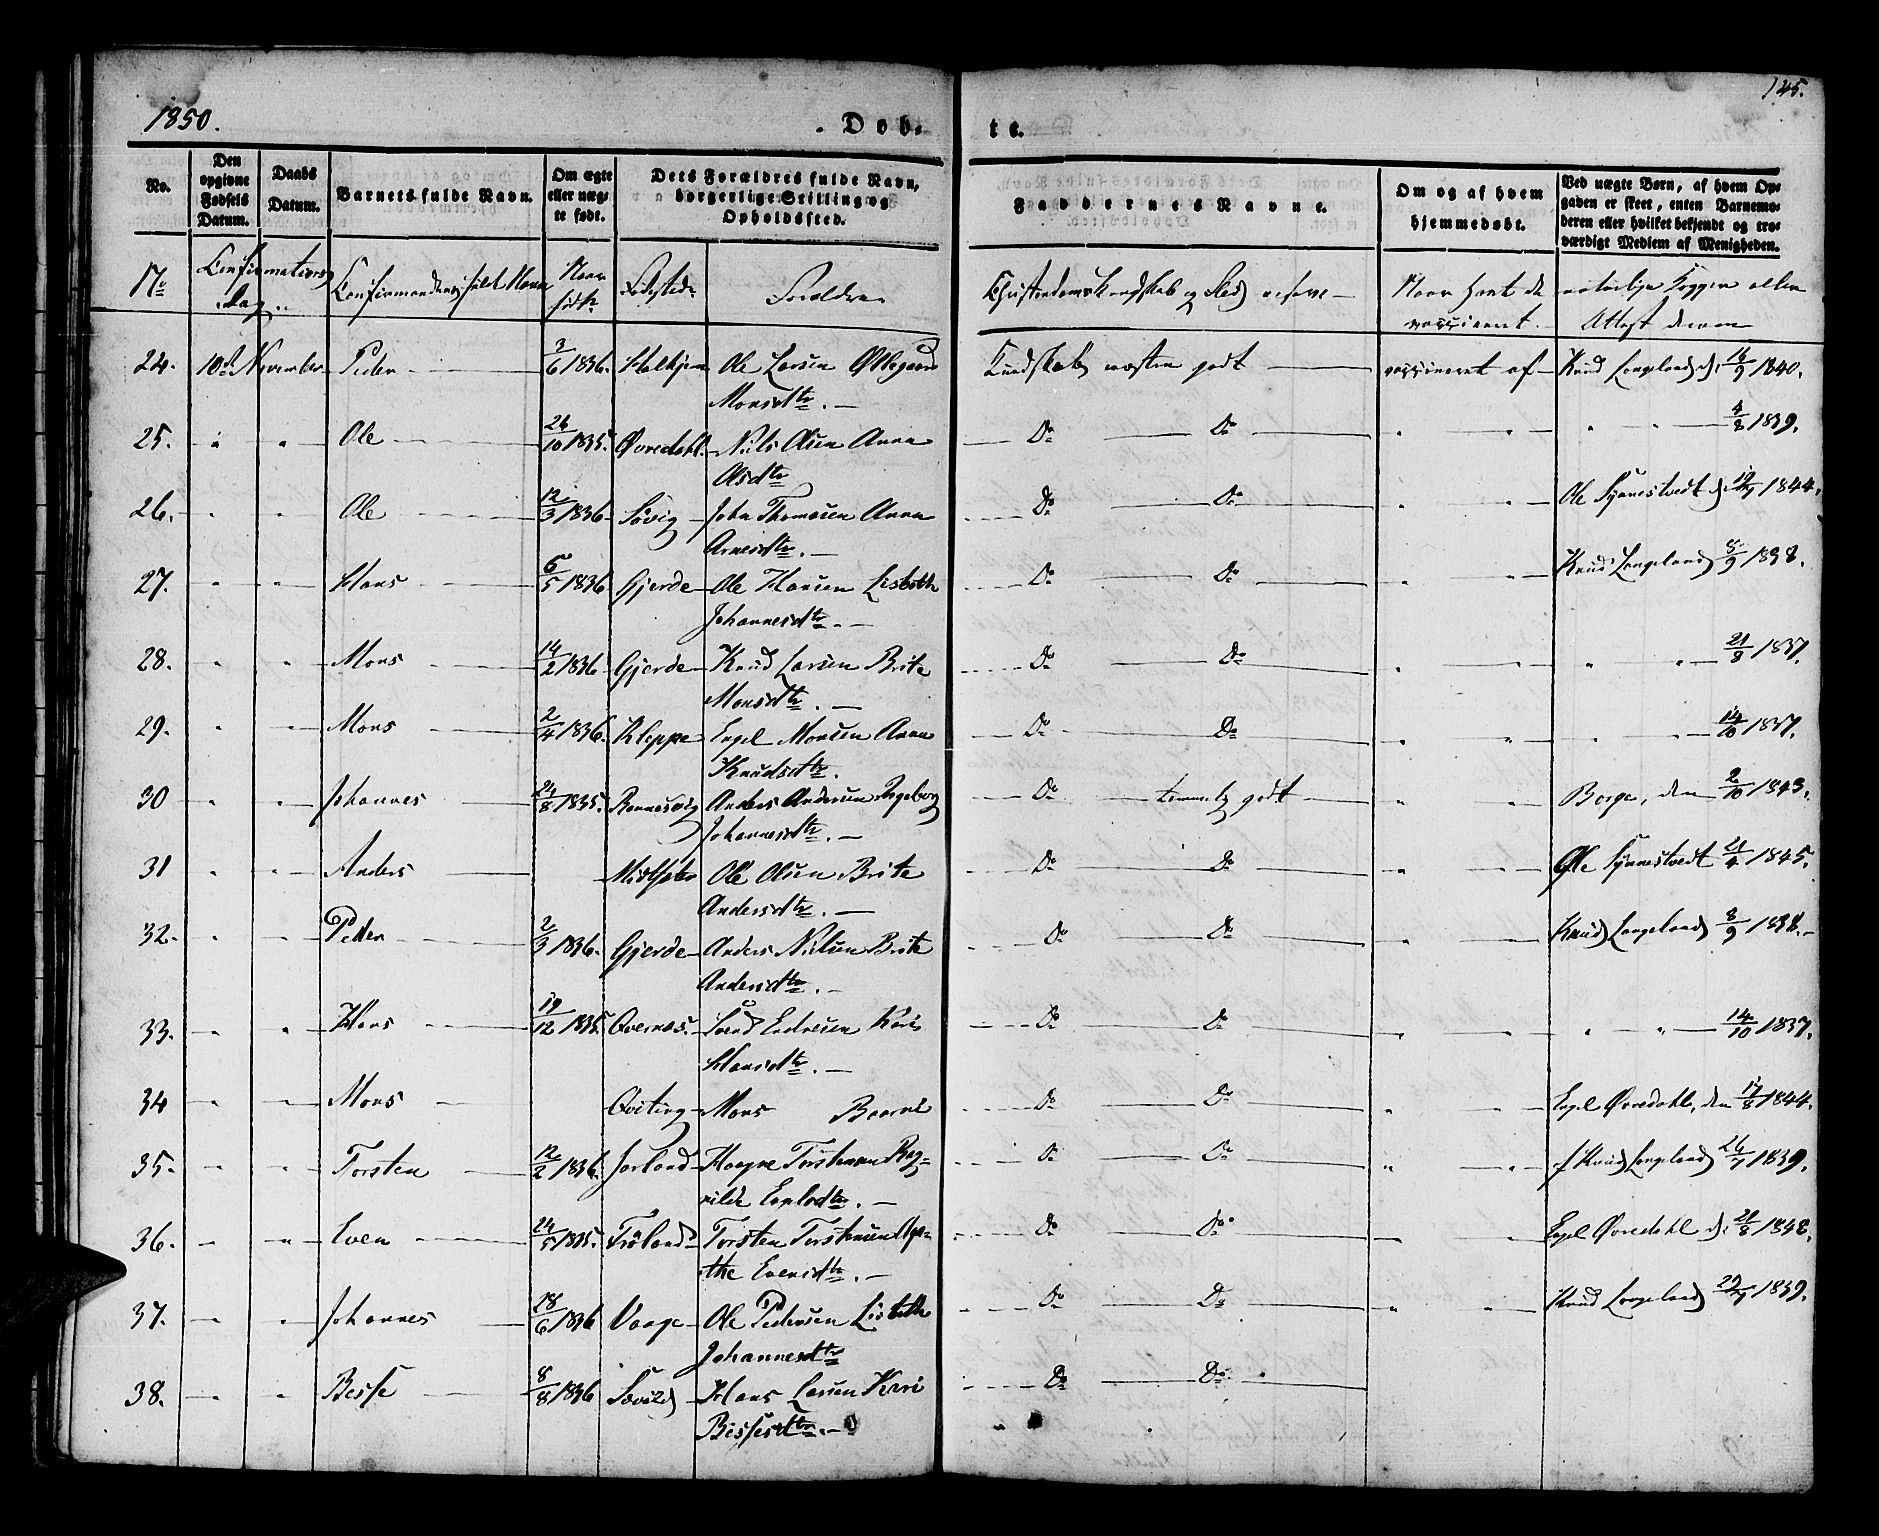 1850.
Døb-
te.
145.
No.
Den opgivne Fødsels Datum.
Daabs Datum.
Barnets fulde Navn.
Om ægte eller uægte født.
Dets Forældres fulde Navn, borgerlige Stilling og Opholdssted.
Faddernes Navne.
Om og af hvem hjemmedøbt.
Ved uægte Børn, af hvem Opgaven er skeet, enten Barnemoderen eller hvilket bekjendt og troværdigt Medlem af Menigheden.
No Confirmations Dag. Confirmandens fulde Navn Naar født Fødested Forældre Christendoms Kundskab og Flid Naar havt de naturlige Kopper eller
vaccineret. Attest derom
24. 10de November Peder 3/6 1836. Halhjem Ole Larsen Ollegaard Kundskab næsten godt vaccineret af Knud Langeland d. 14/9 1840.
Monsdtr. —
25. " " Ole 26/10 1835. Øvredahl. Nils Olsen Anna Do Do " " " " 4/8 1839.
Olsdtr
26. " " Ole 12/3 1836 Søvig John Thomasen Anna Do Do " " Ole Synnestvedt d. 1844.
Arnesdtr. —
27. " " Hans 6/5 1836 Gjerde Ole Hansen Lisbeth Do Do " " Knud Langeland 8/9 1838.
Johannesdtr. —
28. " " Mons 14/2 1836 Gjerde Knud Larsen Brite Do Do " " " " 21/8 1837.
Monsdtr. —
29. " " Mons 2/4 1836. Kleppe Engel Monsen Anna Do Do " " " " 14/10 1837.
Knudsdtr.
30 " " Johannes 24/8 1835. Rennesvig Anders Andersen Ingeborg Do temmelig godt " " Borge, den 2/10 1843.
Johannesdtr. —
31 " " Anders Ole Olsen Brite Do Do " " Ole Synnestvedt 21/4 1845.
Andersdtr. —
32. " " Peder 2/3 1836. Gjerde Anders Nielsen Brite Do Do " " Knud Langeland 8/9 1838.
Andersdtr. —
33. " " Hans 19/12 1835 Øvernæs. Svend Endresen Kari Do Do " " " " 14/10 1837.
Hansdtr. —
34 " " Mons Mons Do Do " " Engel Øvredahl, den 17/8 1844.
35. " " Torsten 12/2 1836. Jorland Haagne Torstensen Rag- Do Do " " Knud Langeland 26/7 1839.
nilde Engelsdtr. —
36. " " Even 24/5 1835. Frøland Torsten Torstensen Aga- Do Do " " Engel Øvredahl d. 21/8 1848.
the Evensdtr. —
37. " " Johannes 18/6 1836 Vaage Ole Pedersen Lisbeth Do Do " " Knud Langeland 29/7 1839.
Johannesdtr
38. " " Besse 8/8 1836 Hans Larsen Kari Do Do
Bessesdtr. —